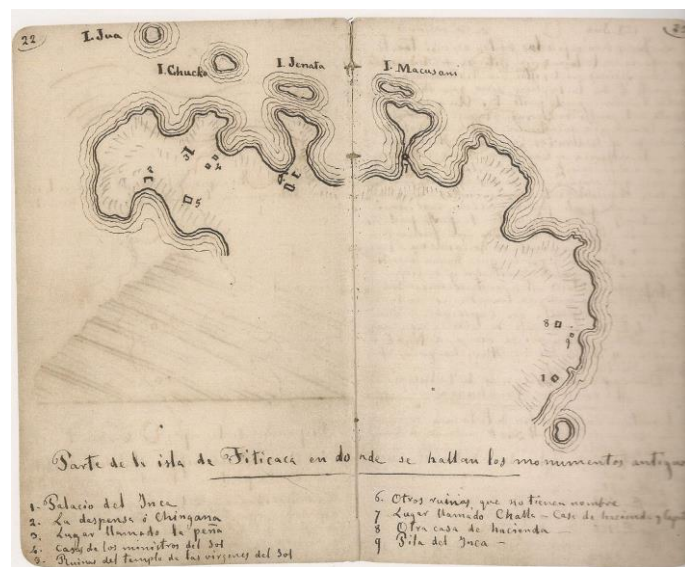 22
I. Jua
I. Chucko
I. Jenata
I. Macusani
3
4
2
5
6
7
8
9
1
Parte de la isla de Titicaca en donde se hallan los monumentos antiguos
1. Palacio del Inca
2. La despensa ó Chingana
3. Lugar llamado la peña
4. Casas de los ministros del Sol
5. Ruinas del templo de las virgenes del Sol
6. Otros ruinas que no tienen nombre
7 Lugar llamado Challa - Casa de hacienda y
8 Otra casa de hacienda -
9 Pila del Inca -